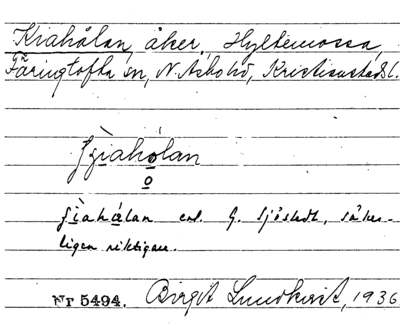 Kiahålan, åker, Hyltemossa,
Färingtofta sn, N. Åsbo hd, Kristianstads l.
ʃìahólan
o
ʃìahålan enl. G. Sjöstedt, säker-
ligen riktigare.
Nr 5494. Birgit Lundkvist, 1936